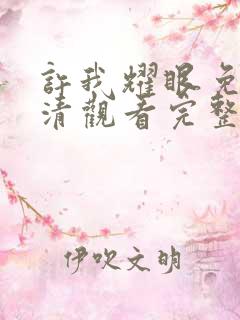 許我耀眼免
清觀看完整
伊吹文明